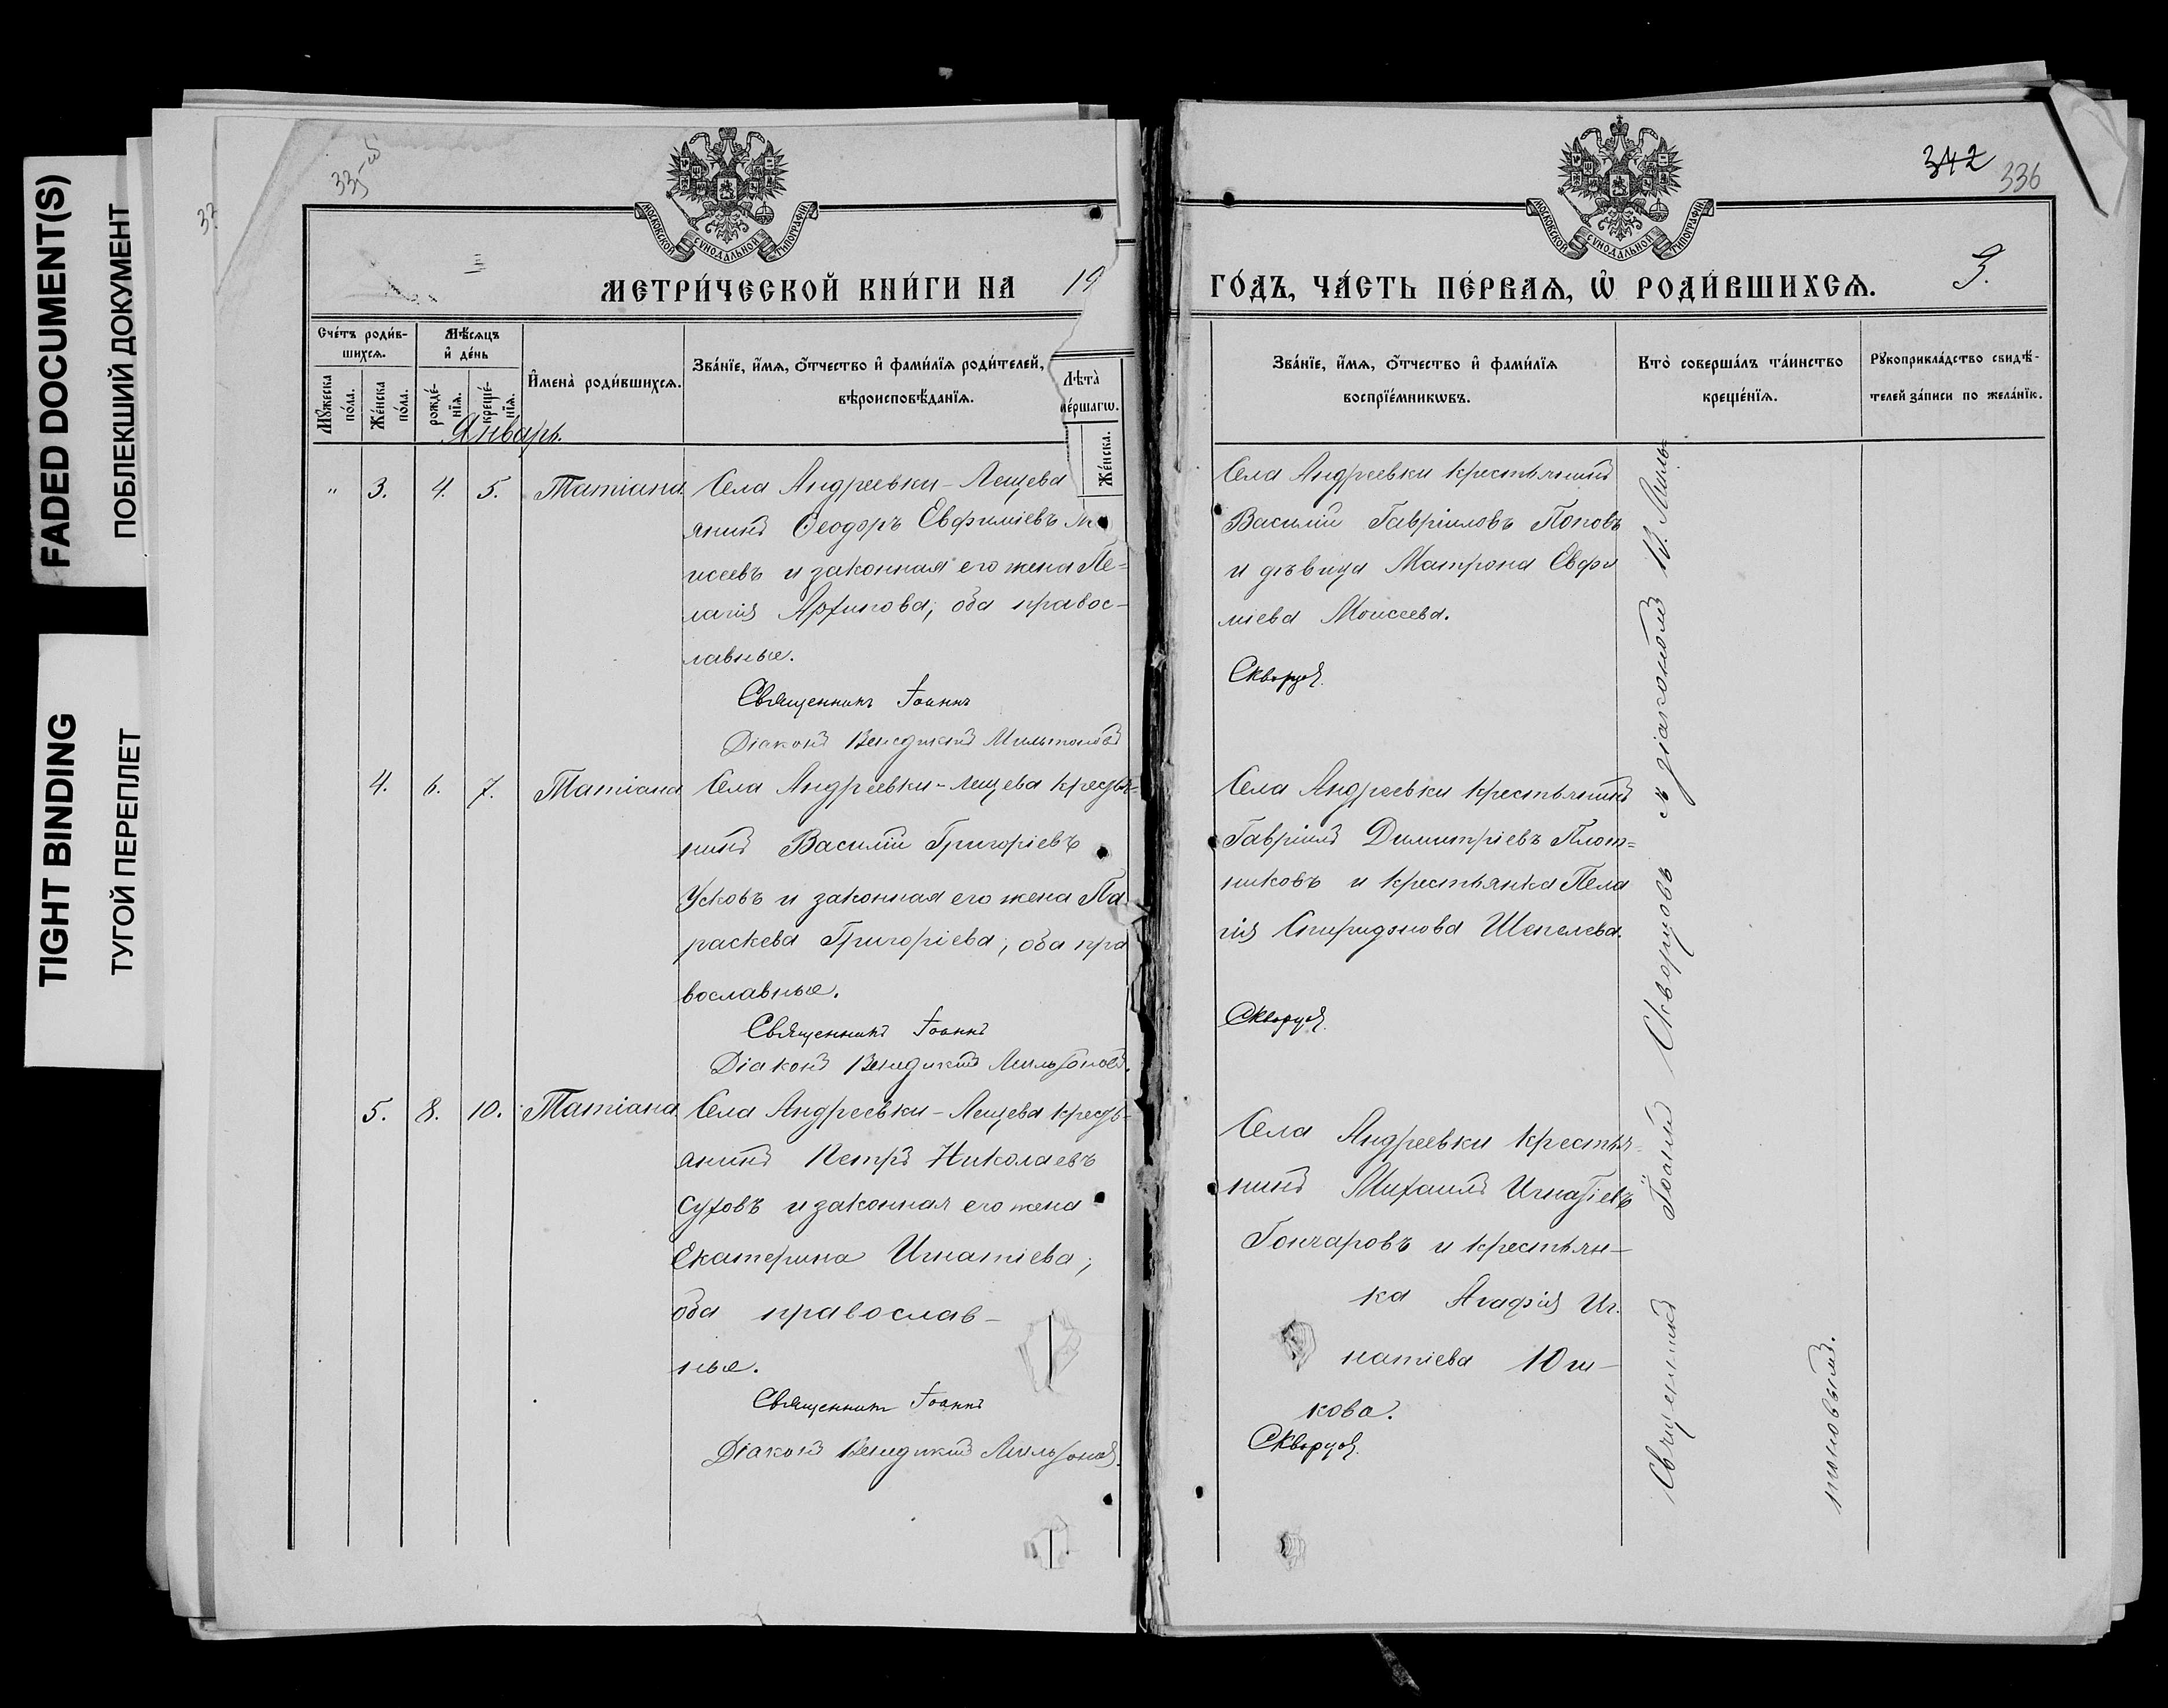 FADED DOCUMENT(S)
ПОБЛЕКШИЙ ДОКУМЕНТ
TIGHT BINDING
ТУГОЙ ПЕРЕПЛЕТ
МОСКОВСКОЙ СѴНОДАЛЬНОЙ ТИПОГРАФІИ
МЕТРИ́ЧЕСКОЙ КНИ́ГИ НА 19
Сче́тъ роди́в-
шихсѧ.
Мѣ́сѧцъ
и҆ де́нь
Мꙋ́жеска
по́ла.
Же́нска
по́ла.
рожде́-
нїѧ.
креще́-
нїѧ.
И҆мена̀ роди́вшихсѧ.
Зва́нїе, и҆́мѧ, ѻ҆́тчество и҆ фами́лїѧ роди́телей,
вѣроисповѣ́данїѧ.
Лѣта̀
Же́нска.
Январь.
" 3. 4. 5. Татіана. Села Андреевки-Лещева
янинъ Ѳеодоръ Евфиміевъ Мо
исеевъ и законная его жена Пе=
лагія Архипова; оба правос-
лавные.
Священникъ Іоаннъ
Діаконъ Венедиктъ Мильтоновъ
4. 6. 7. Татіана Села Андреевки-Лещева крестья=
нинъ Василій Григоріевъ
Усковъ и законная его жена Па
раскева Григоріева; оба пра
вославные.
Священникъ Іоаннъ
Діаконъ Венедиктъ Мильтоновъ.
5. 8. 10. Татіана. Села Андреевки-Лещева кресть-
янинъ Петръ Николаевъ
Суховъ и законная его жена
Екатерина Игнатіева;
оба православ-
ные.
Священникъ Іоаннъ
Діаконъ Венедиктъ Мильтоновъ.
342
336
МОСКОВСКОЙ СѴНОДАЛЬНОЙ ТИПОГРАФІИ
ГО́ДЪ, ЧА́СТЬ ПЕ́РВАѦ, Ѽ РОДИ́ВШИХСѦ.
3.
Зва́нїе, и҆́мѧ, ѻ҆́тчество и҆ фами́лїѧ
воспрїе́мникѡвъ.
Кто̀ соверша́лъ та́инство
креще́нїѧ.
Рꙋкоприкла́дство свидѣ́-
телей за́писи по жела́нїю.
Села Андреевки крестьянинъ
Василій Гавріиловъ Поповъ
и дѣвица Матрона Евфи
міева Моисеева.
Скворцовъ.
Села Андреевки крестьянинъ
Гавріилъ Димитріевъ Плот=
никовъ и крестьянка Пела
гія Спиридонова Шепелева.
Скворцовъ.
Села Андреевки крестья-
нинъ Михаилъ Игнатіевъ
Гончаровъ и крестьян-
ка Агафія Иг.
натіева Юш-
кова.
Скворцовъ.
Священникъ Іоаннъ Скворцовъ съ діакономъ В. Миль=
тоновымъ.